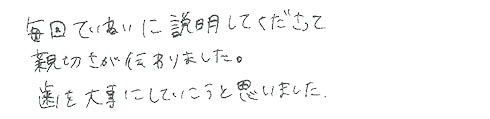 毎回ていねいに説明してくださって
親切さが伝わりました。
歯を大事にしていこうと思いました.